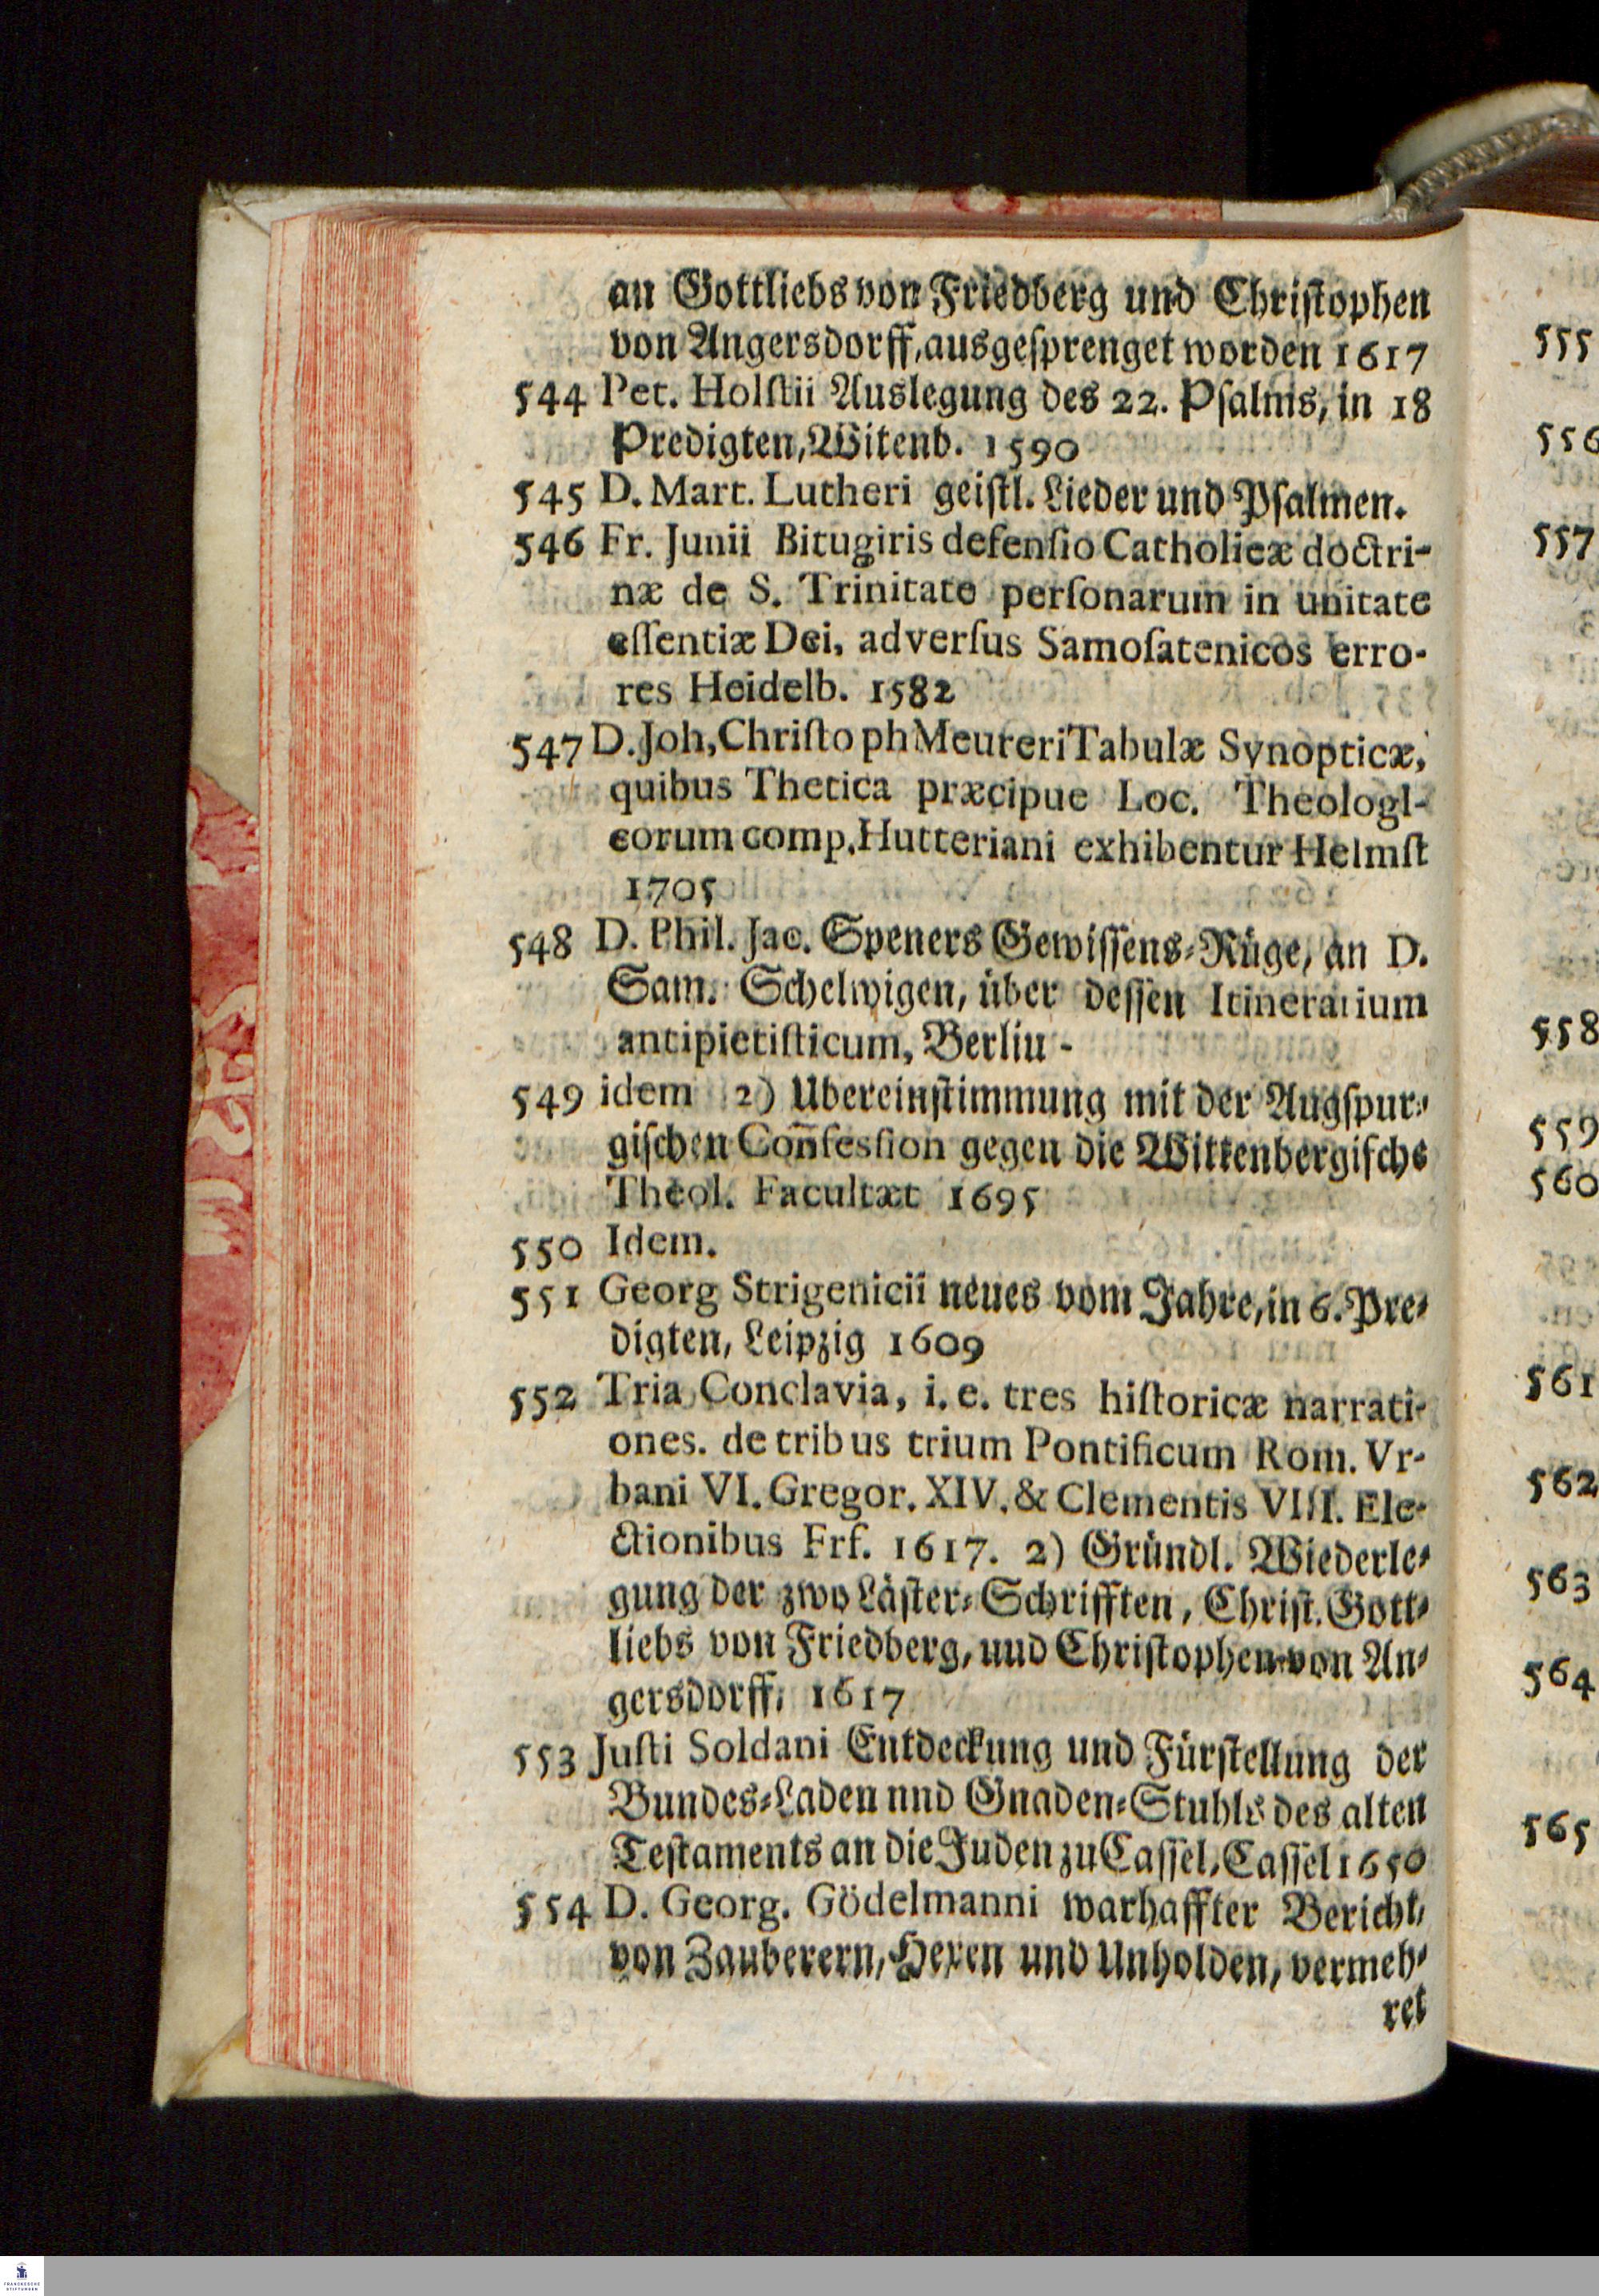 an Gottliebs von Friedberg und Christophen
von Angersdorff, ausgesprenget worden 1617
544 Pet. Holstii Auslegung des 22. Psalms, in 18
Predigten, Witenb. 1590
545 D. Mart. Lutheri geistl. Lieder und Psalmen.
546 Fr. Junii Bitugiris defensio Catholicæ doctri-
næ de S. Trinitate personarum in unitate
essentiæ Dei, adversus Samosatenicos erro-
res Heidelb. 1582
547 D. Joh, Christoph Meureri Tabulæ Synopticæ,
quibus Thetica præcipue Loc. Theologl-
corum comp. Hutteriani exhibentur Helmst
1705
548 D. Phil. Jac. Speners Gewissens-Rüge, an D.
Sam. Schelwigen, über dessen Itinerarium
antipietisticum, Berliu -
549 idem 2) Ubereinstimmung mit der Augspur-
gischen Con̄fession gegen die Wittenbergische
Theol. Facultæt 1695
550 Idem.
551 Georg Strigenicii neues vom Jahre, in 6. Pre-
digten, Leipzig 1609
552 Tria Conclavia, i. e. tres historicæ narrati-
ones. de tribus trium Pontificum Rom. Vr-
bani VI. Gregor. XIV. & Clementis VIII. Ele-
ctionibus Frf. 1617. 2) Gründl. Wiederle-
gung der zwo Läster-Schrifften, Christ. Gott-
liebs von Friedberg, uud Christophen von An-
gersdorff, 1617
553 Justi Soldani Entdeckung und Fürstellung der
Bundes-Laden nnd Gnaden-Stuhls des alten
Testaments an die Juden zu Cassel, Cassel 1650
554 D. Georg. Gödelmanni warhaffter Bericht,
von Zauberern, Hexen und Unholden, vermeh-
ret
555
556
557
558
559
560
561
562
563
564
565
FRANCKESCHE
STIFTUNGEN